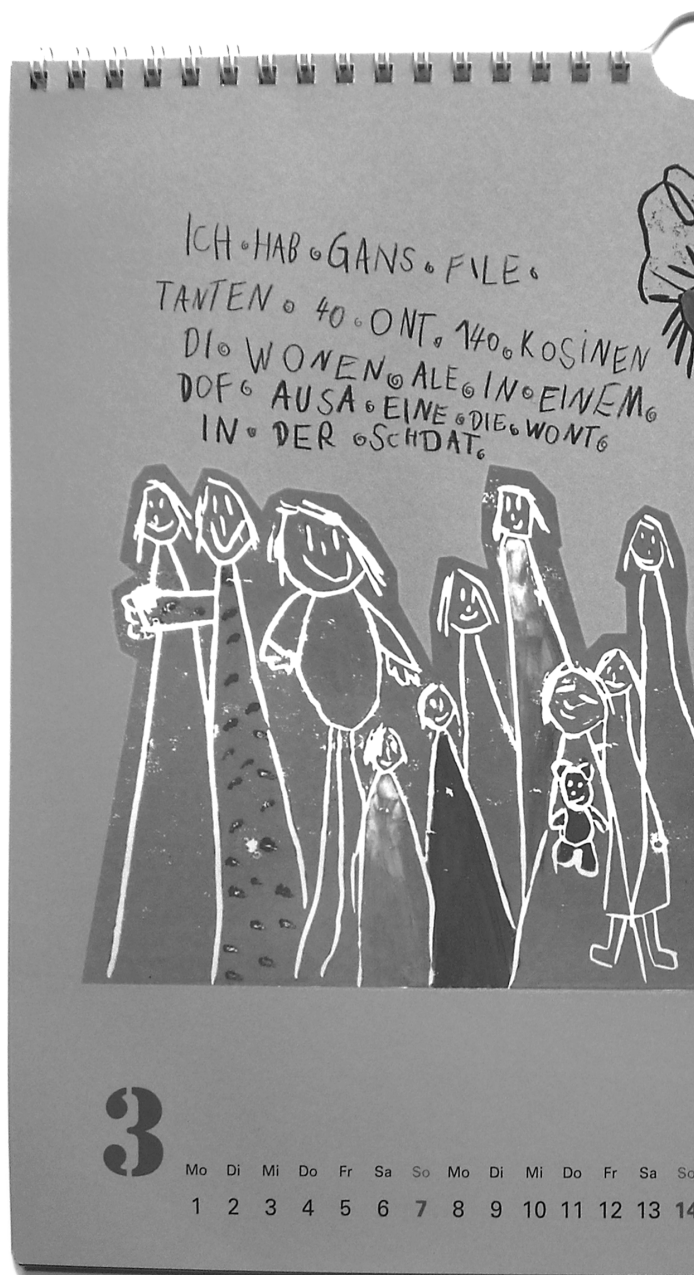 ICH. HAB. GANS. FILE.
TANTEN. 40. ONT. 140. KOSINEN
DI. WONEN. ALE. IN. EINEM.
DOF. AUSA. EINE. DIE. WONT.
IN. DER. SCHDAT.
3
Mo Di Mi Do Fr Sa So Mo Di Mi Do Fr Sa So
1 2 3 4 5 6 7 8 9 10 11 12 13 14